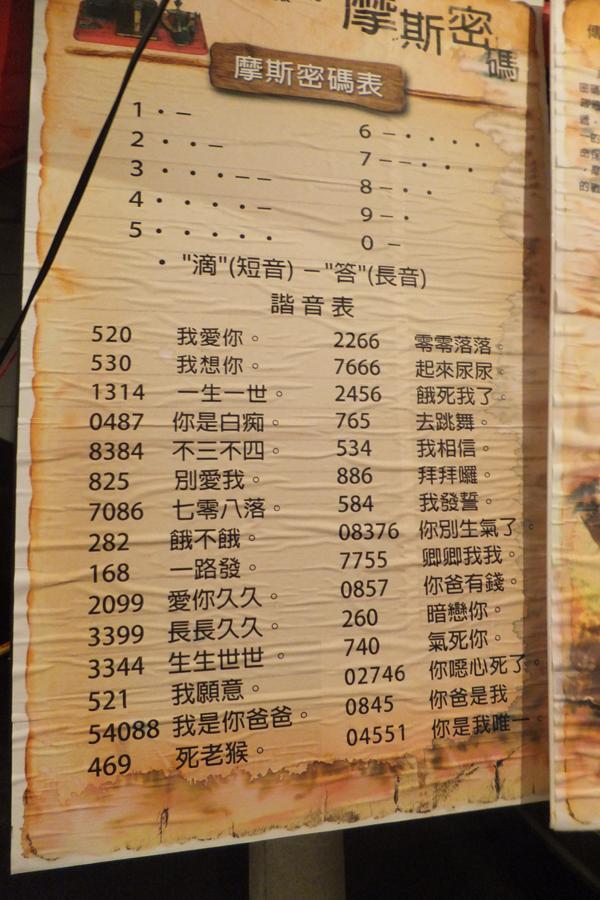 摩斯密碼
摩斯密碼表
1 · —
2 · · —
3 · · · — —
4 · · · · —
5 · · · · ·
6 — · · · ·
7 — — · · ·
8 — · ·
9 — ·
0 —
· "滴"(短音) — "答"(長音)
諧音表
520 我愛你。
530 我想你。
1314 一生一世。
0487 你是白痴。
8384 不三不四。
825 別愛我。
7086 七零八落。
282 餓不餓。
168 一路發。
2099 愛你久久。
3399 長長久久。
3344 生生世世。
521 我願意。
54088 我是你爸爸。
469 死老猴。
2266 零零落落。
7666 起來尿尿。
2456 餓死我了。
765 去跳舞。
534 我相信。
886 拜拜囉。
584 我發誓。
08376 你別生氣了。
7755 卿卿我我。
0857 你爸有錢。
260 暗戀你。
740 氣死你。
02746 你噁心死了。
0845 你爸是我
04551 你是我唯一。